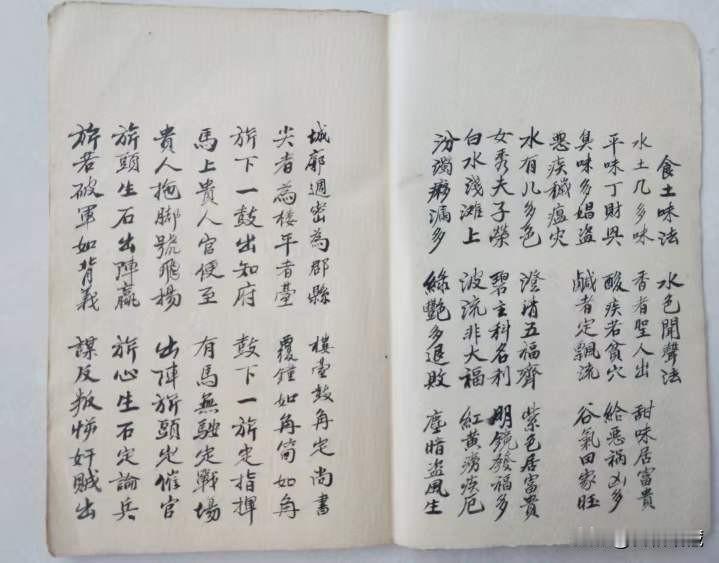 食土味法 水色聞聲法
水土几多味 香者聖人出 甜味居富貴
平味丁財興 酸疾若貧穴 給惡禍凶多
臭味多娼盜 鹹者定飄流 谷氣田家旺
惡疾穢瘟災
水有儿多色 澄清五福齊 紫色居富貴
女秀夫子榮 碧主科名利 明鏡發福多
白水淺滩上 波流非大福 紅黄痨疾厄
汾濁漏多 綠艷多退敗 塵暗盜風生
城廓週密為郡縣 樓臺鼓角定尚書
尖者為樓平者臺 覆鐘如角筍如角
旂下一鼓出知府 鼓下一旂定指揮
馬上貴人官便至 有馬無馳定戰場
貴人拖脚號飛楊 出陣旂頭定催官
旂頭生石出陣贏 旂心生石定論兵
旂若破軍如背義 謀反叛悌奸賊出